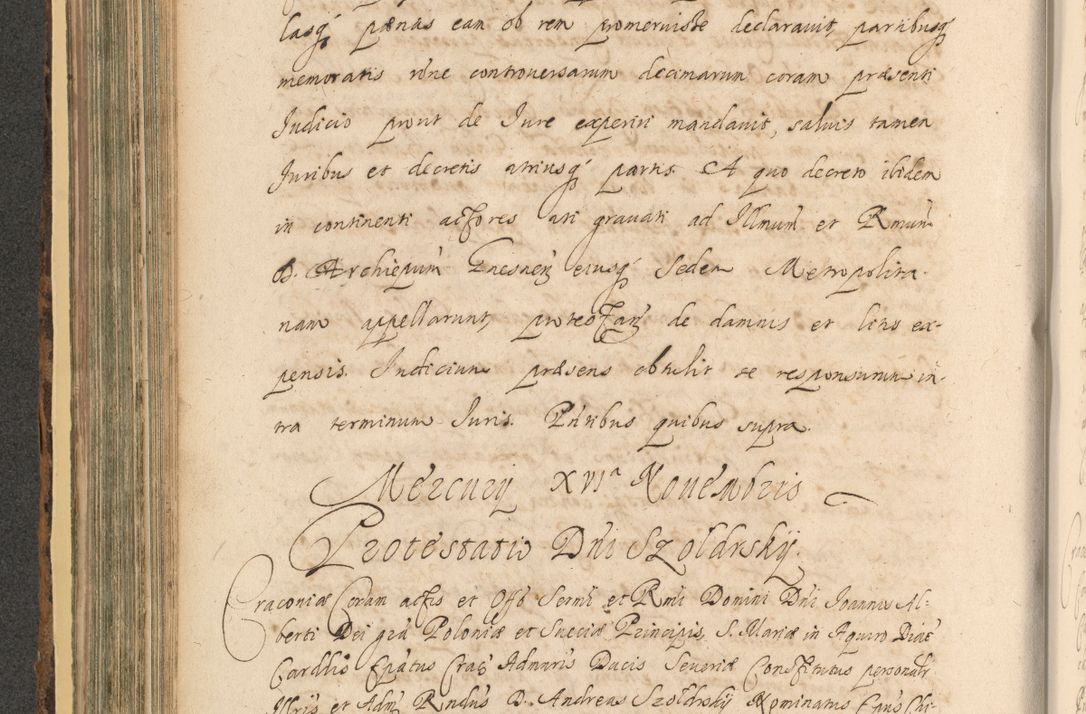 lasq́ pœnas eam ob rem promeruisse declarauit, partibusq́
memoratis rōne controuersarum decimarum coram præsenti
Judicio prout de Jure experiri mandauit, saluis tamen
Juribus et decretis utriusq́ partis. A quo decreto ibidem
in continenti actores uti grauati ad Illmum et Rmum
D. Archiepum Gnesnen̄ eiusq́ Sedem Metropolita-
nam appellarunt, protestan̄ de damnis et litis ex-
pensis. Judicium præsens obtulit se responsurum in-
tra terminum Juris. Pntibus quibus supra.
Mercurij XVIa Nouembris
Protestatio Dni Szoldrskij.
Cracouiæ Coram actis et Offo Sermi et Rmi Domini Dni Joannis Al-
berti Dei gra Poloniæ et Sueciæ Principis, S. Mariæ in Aquiro Diac
Cardlis Epatus Crac Admnris Ducis Seueriæ Constitutus personalr
Illris et Adm Rndus D. Andreas Szoldrskij Nominatus Epus Chi-